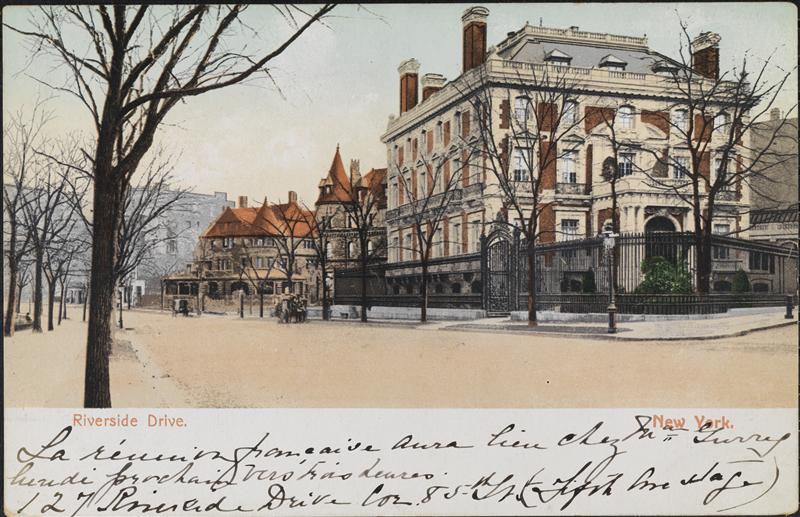 Riverside Drive.
New York.
La réunion française aura lieu chez Mrs Gurrey
lundi prochain vers trois heures.
127 Riverside Drive Cor. 85th St. (Fifth Ave stage)